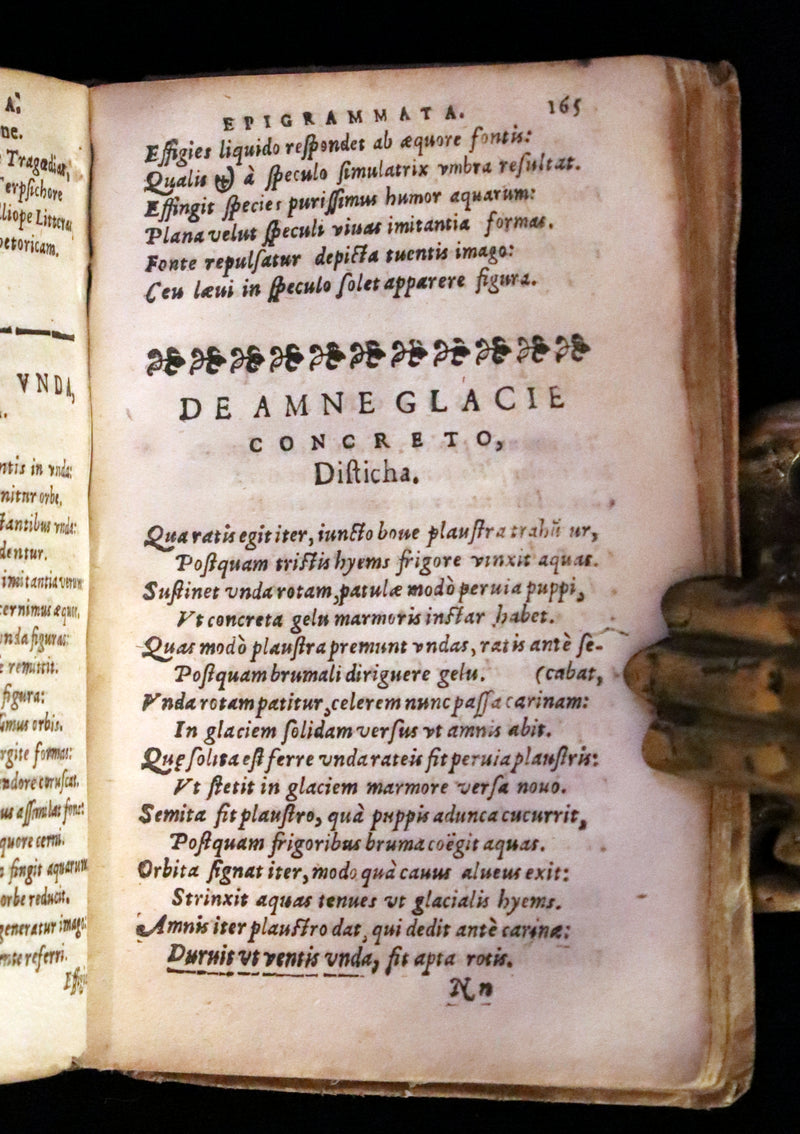 A.
ne.
Tragœdiar,
erpsichore
lliope Litteras
etoricam.
VNDA,
ntis in vnda:
nitur orbe,
tantibus vnda:
dentur.
imitantia verum
cernimus æquor,
nda figuras:
e remittit.
figura:
imus orbis.
rgite formas:
ndore coruscat.
us assimilat fons:
quore cerni.
fingit aquarum
orbe reducit.
generatur imago:
nte referri.
Effi-
EPIGRAMMATA. 165
Effigies liquido reſpondet ab æquore fontis:
Qualis à ſpeculo ſimulatrix vmbra reſultat.
Effingit ſpecies puriſſimus humor aquarum:
Plana velut ſpeculi viuas imitantia formas.
Fonte repulſatur depicta tuentis imago:
Ceu læui in ſpeculo ſolet apparere figura.
DE AMNE GLACIE
CONCRETO,
Diſticha.
Qua ratis egit iter, iuncto boue plauſtra trahũtur,
Poſtquam triſtis hyems frigore vinxit aquas.
Suſtinet vnda rotam, patulæ modò peruia puppi,
Vt concreta gelu marmoris inſtar habet.
Quas modò plauſtra premunt vndas, ratis antè ſe-
Poſtquam brumali diriguere gelu. (cabat,
Vnda rotam patitur, celerem nunc paſſa carinam:
In glaciem ſolidam verſus vt amnis abit.
Quę ſolita eſt ferre vnda rateis fit peruia plauſtris:
Vt ſtetit in glaciem marmore verſa nouo.
Semita fit plauſtro, quà puppis adunca cucurrit,
Poſtquam frigoribus bruma coëgit aquas.
Orbita ſignat iter, modo quà cauus alueus exit:
Strinxit aquas tenues vt glacialis hyems.
Amnis iter plauſtro dat, qui dedit antè carinæ:
Duruit vt ventis vnda, fit apta rotis.
Nn